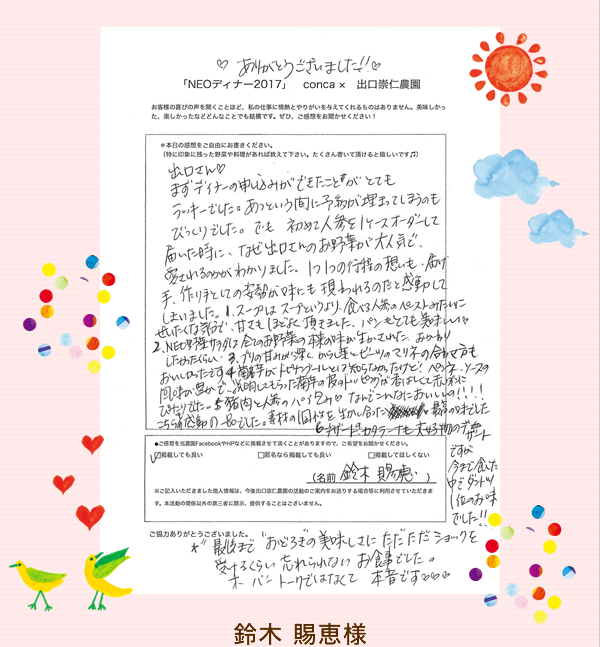 ♡ ありがとうございました!! ♡
「NEOディナー2017」 conca × 出口崇仁農園
お客様の喜びの声を聞くことほど、私の仕事に情熱とやりがいを与えてくれるものはありません。美味しかっ
た、楽しかったなどどんなことでも結構です。ぜひ、ご感想をお聞かせください!
*本日の感想をご自由にお書きください。
(特に印象に残った野菜や料理があれば教えて下さい。たくさん書いて頂けると嬉しいです♫)
出口さん♡
まずディナーの申し込みができたことがとても
ラッキーでした。あっという間に予約が埋まってしまうのも
びっくりでした。でも 初めて人参を1ケースオーダーして
届いた時に、なぜ出口さんのお野菜が大人気で、
愛されるのかがわかりました。1つ1つの行程の想いも、届け
手、作り手としての姿勢が味にも現われるのだと感動して
しまいました。1.スープはスープというより、食べる人参のペーストみたいに
ぜいたくな気分で、甘さもほどよく頂きました。パンもとても美味しい♡
2.NEO野菜サラダは全てのお野菜の本来の味が生かされていた。おかわり
したかったくらい。3.ブリの甘みが深く、からし菜とビーツのマリネの合わせ方も
おいしかったです 4.菊芋がトピナンブールとは知らなかったけど、ペンネ、ソースの
風味が豊かで、説明してもらった菊芋の皮のトッピングが香ばしくて
ぴったりでした。5.猪肉と人参のパイ包み♡ なんでこんなにおいしいの!!!!
感動の一品でした。素材の個性を生かし合った 最高の味でした
6.デザート カタラーナも大好物のデザート
ですが
今まで食べた
中でダントツ
1位のお味
でした!!
●ご感想を当農園FacebookやHPなどに掲載させて頂くことがありますので、ご希望をお聞かせください。
☑掲載しても良い □匿名なら掲載しても良い □掲載してほしくない
(名前 鈴木 賜恵 )
※ご記入いただきました個人情報は、今後出口崇仁農園の活動のご案内をお送りする場合等に利用させていただきま
す。本活動の関係以外の第三者に開示、提供することはございません。
ご協力ありがとうございました。
*最後まで“おどろきの美味しさ”にただただショックを
受けるくらい 忘れられない お食事でした。
オーバートークではなくて 本音です♡♡♡
鈴木 賜恵様